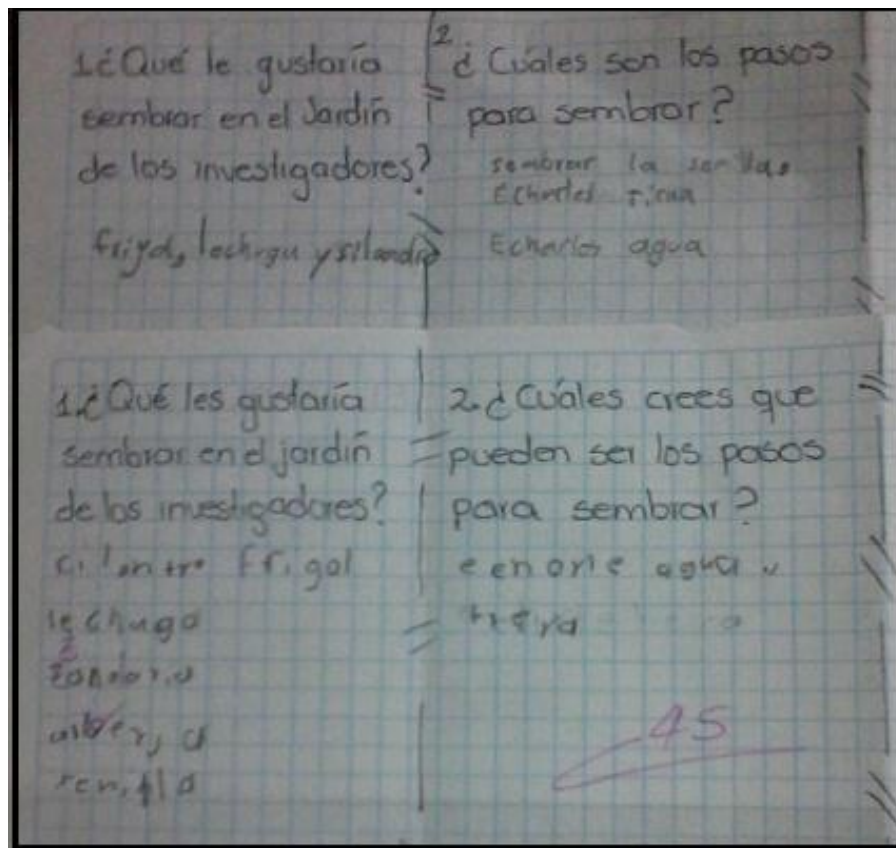 1 ¿Qué le gustaría
sembrar en el Jardín
de los investigadores?
frigol, lechugu y silandro
2 ¿Cuáles son los pasos
para sembrar?
sembrar la semillas
Echarles tierra
Echarles agua
1. ¿Qué les gustaría
sembrar en el jardín
de los investigadores?
cilantro Frigol
lechuga
arberja
2. ¿Cuáles crees que
pueden ser los pasos
para sembrar?
agua
45